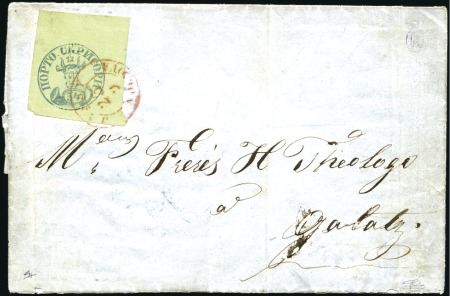 ПОРТО СКРИСОРИ
Frères H Theologo
a
Galatz.